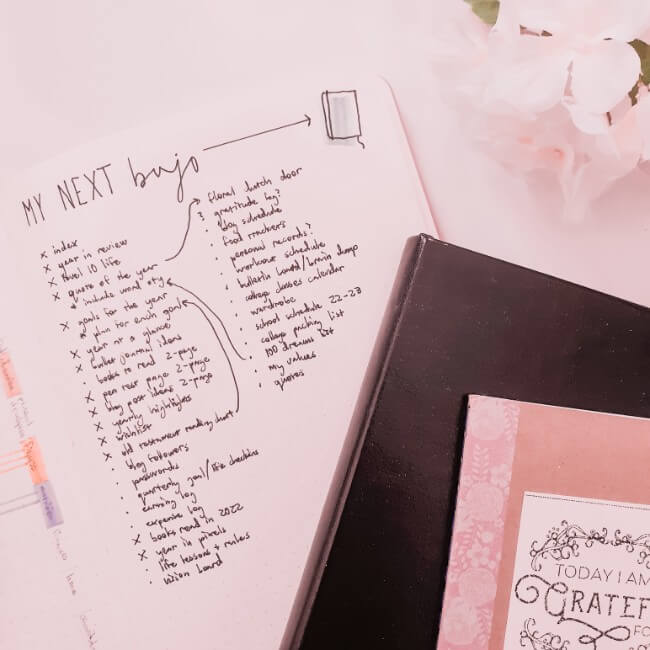 MY NEXT bujo
x index
x year in review
x level 10 life
x quote of the year
* include word ofy
x goals for the year
* plan for each goal
x year at a glance
x winter journal ideas
. books to read 2-page
x pen test page 2-page
x blog post ideas 2-page
x yearly highlights
x wishlist
x old testament reading chart
. blog followers
. passwords
. quarterly goal/life checkins
. earning log
. expense log
x books read in 2022
x year in pixels
. life lessons + rules
. vision board
. floral dutch door
? gratitude log?
. day schedule
. food trackers
. personal records?
. workout schedule
. bulletin board/brain dump
. college classes calendar
. wardrobe
. school schedule 22-23
. college packing list
. 100 dreams list
. my values
. quotes
TODAY I AM
GRATEF
FO